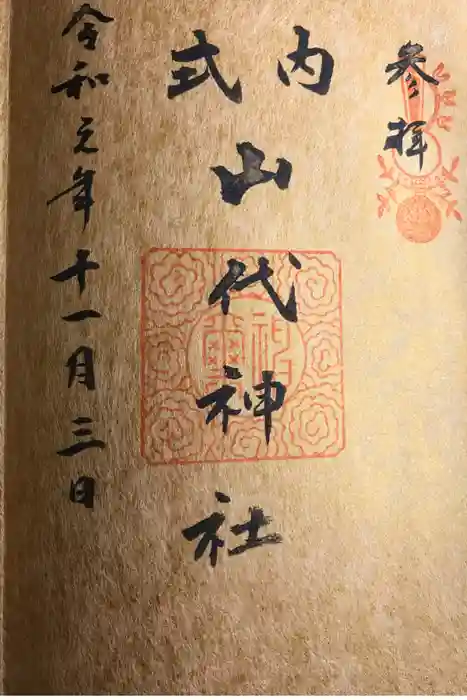 参拝
式内
山代神社
令和元年十一月三日